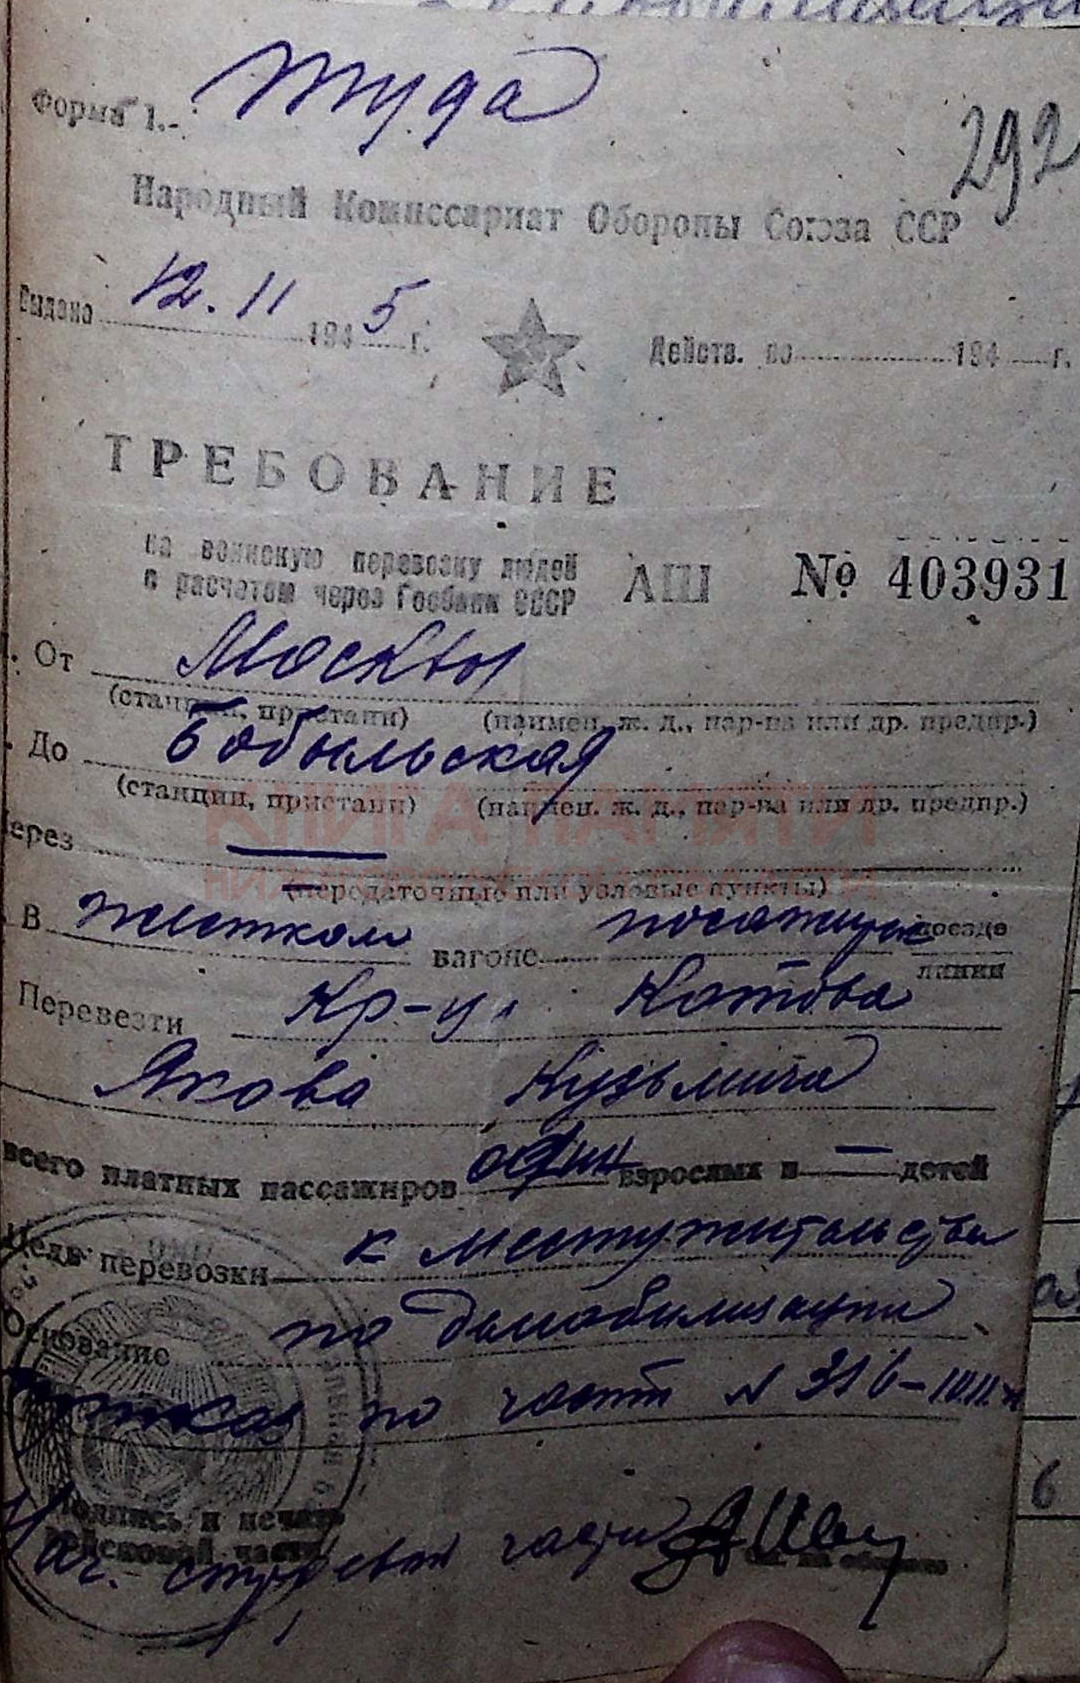 Форма 1.- Туда
292
Народный Комиссариат Обороны Союза ССР
Выдано 12.11 1945 г.
Действ. по 194 г.
ТРЕБОВАНИЕ
на воинскую перевозку людей
с расчетом через Госбанк СССР
АШ № 403931
От Москвы
(станции, пристани) (наимен. ж. д., пар-ва или др. предпр.)
До Бобыльская
(станции, пристани) (наимен. ж. д., пар-ва или др. предпр.)
КНИГА ПАМЯТИ
НИЖЕГОРОДСКОЙ ОБЛАСТИ
Через —
(передаточные или узловые пункты)
В жестком вагоне поезде
линии
Перевезти Кр-ца Котова
Якова Кузьмича
всего платных пассажиров один взрослых и — детей
Цель перевозки к местужительства
Основание по демобилизации
приказ по части N 316-
Подпись и печать
войсковой части
Нач. строевой части